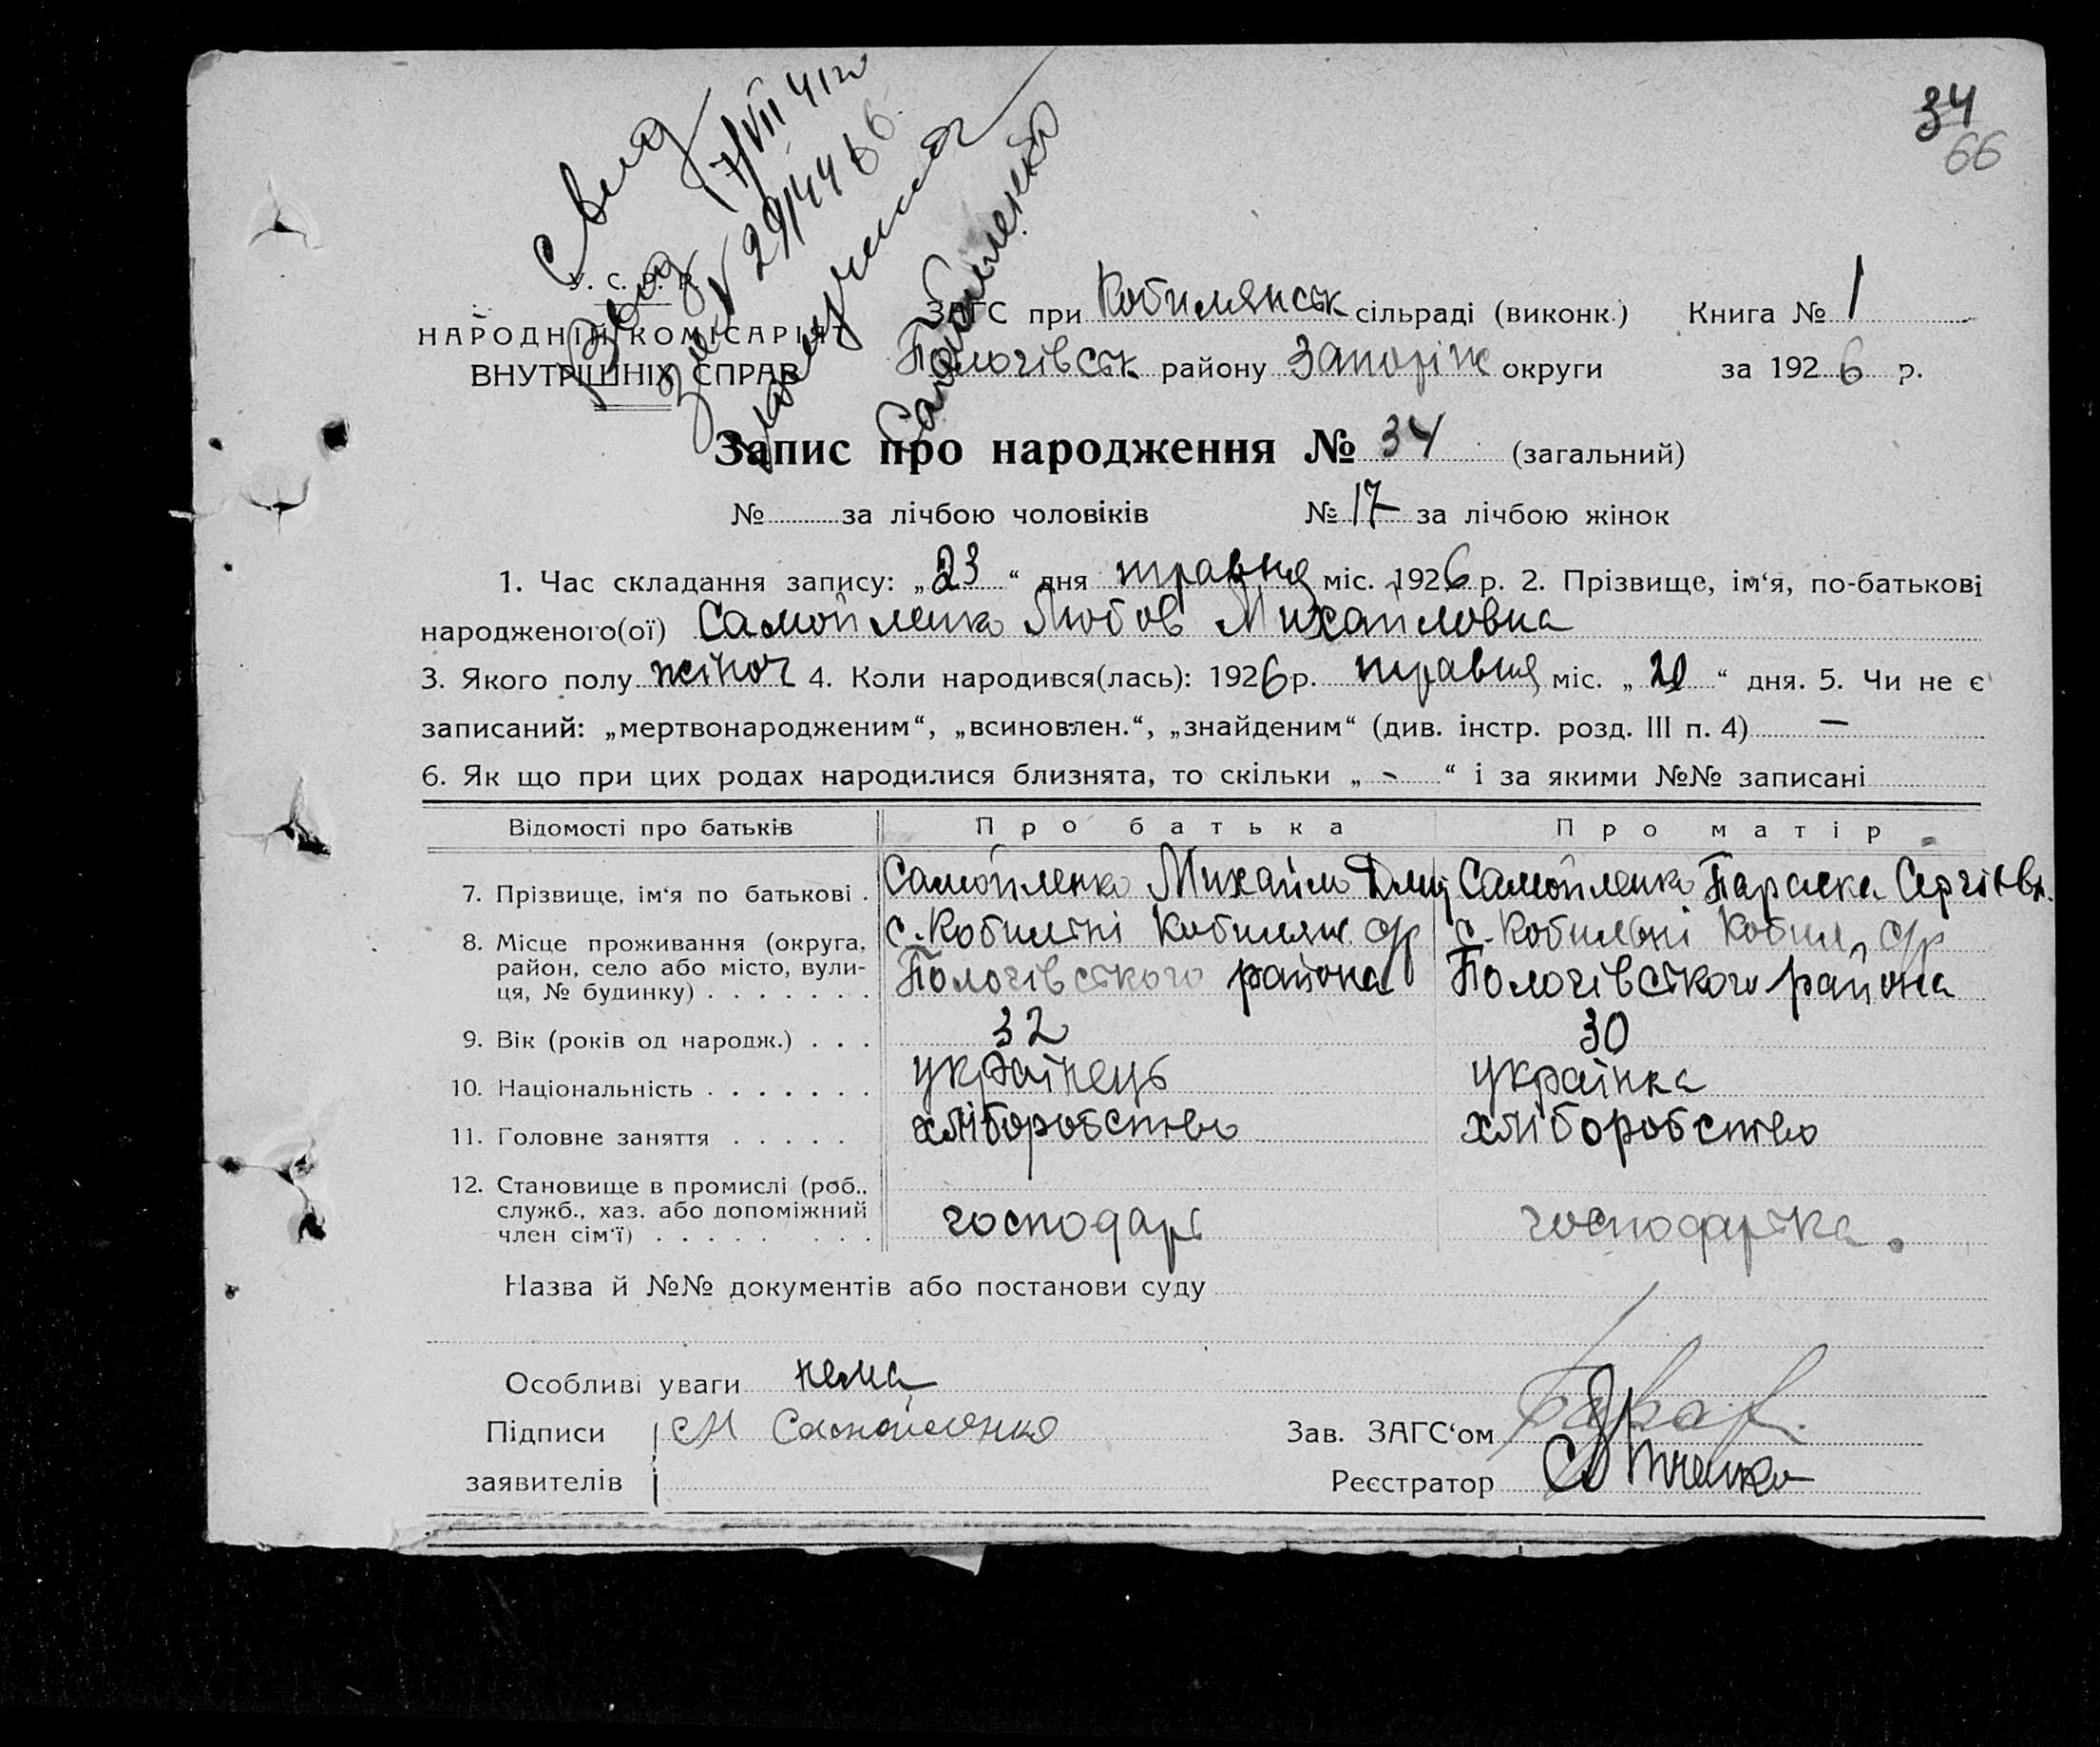 34
66
Свид
7/VII 41 г
Получила
Самойленко
У. С. Р. Р.
НАРОДНІЙ КОМІСАРІЯТ
ВНУТРІШНІХ СПРАВ
ЗАГС при Кобилянськ сільраді (виконк.) Книга № 1
Пологівськ. району Запоріж округи за 1926 р.
Запис про народження № 34 (загальний)
№ за лічбою чоловіків № 17 за лічбою жінок
1. Час складання запису: „23“ дня травня міс. 1926 р. 2. Прізвище, ім‘я, по-батькові
народженого(ої) Самойленко Любов Михайловна
3. Якого полу жіноч 4. Коли народився(лась): 1926 р. травня міс. „20“ дня. 5. Чи не є
записаний: „мертвонародженим“, „всиновлен.“, „знайденим“ (див. інстр. розд. III п. 4) —
6. Як що при цих родах народилися близнята, то скільки „-“ і за якими №№ записані
Відомості про батьків Про батька Про матір
7. Прізвище, ім‘я по батькові . Самойленко Михайло Дмит Самойленко Параска Сергіївн.
8. Місце проживання (округа, район, село або місто, вулиця, № будинку) . . . . . . . с. Кобильні Кобилян. с/р Пологівського района с. Кобильні Кобил. с/р Пологівського района
9. Вік (років од народж.) . . . 32 30
10. Національність . . . . . . . українець українка
11. Головне заняття . . . . . хліборобство хліборобство
12. Становище в промислі (роб., служб., хаз. або допоміжний член сім‘ї) . . . . . . . . господарь господарька.
Назва й №№ документів або постанови суду
Особливі уваги нема
Підписи М Самойленко Зав. ЗАГС‘ом
заявителів Реєстратор